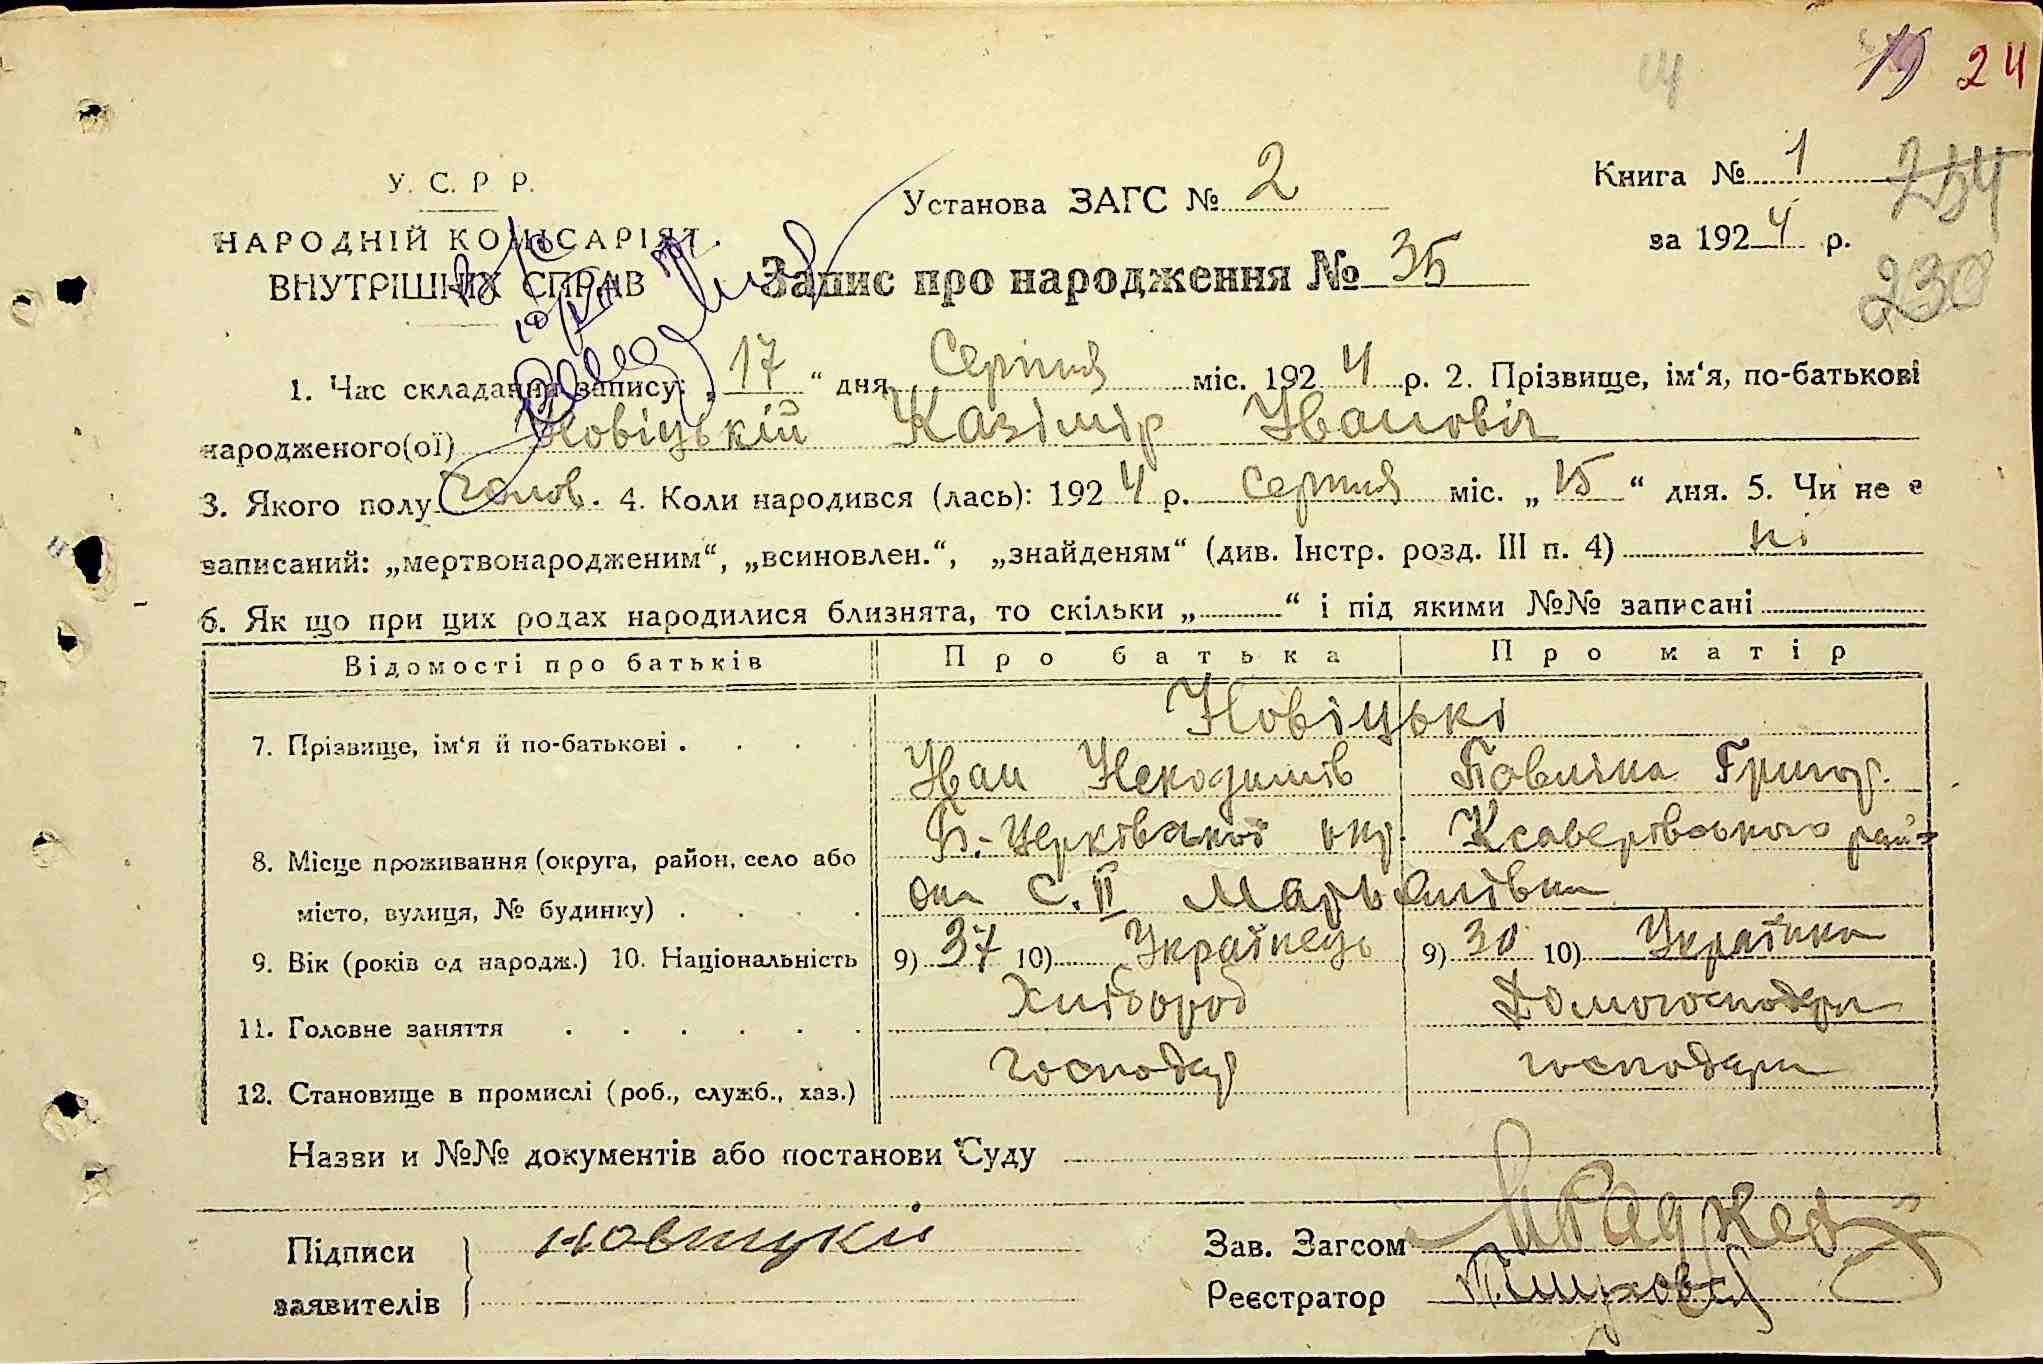 19 24
У. С. Р Р.
НАРОДНІЙ КОМІСАРІЯТ
ВНУТРІШНІХ СПРАВ
Установа ЗАГС № 2
Книга № 1
254
за 1924 р.
230
Запис про народження № 35
1. Час складання запису: „17“ дня Серпня міс. 1924 р. 2. Прізвище, ім‘я, по-батькові
народженого(ої) Новіцькій Казімір Іванович
3. Якого полу чолов. 4. Коли народився (лась): 1924 р. Серпня міс. „15“ дня. 5. Чи не є
записаний: „мертвонародженим“, „всиновлен.“, „знайденям“ (див. Інстр. розд. III п. 4) ні
6. Як що при цих родах народилися близнята, то скільки „ “ і під якими №№ записані
Відомості про батьків Про батька Про матір
Новіцькі
7. Прізвище, ім‘я й по-батькові . . . .
Іван Некодимів Павліна Григор.
Б.-Церківської окр. Ксаверівського рай-
8. Місце проживання (округа, район, село або
она с. II Мар'янівка
місто, вулиця, № будинку) . . . .
9. Вік (років од народж.) 10. Національність 9) 37 10) Українець 9) 30 10) Українка
11. Головне заняття . . . . . . Хлібороб Домогосподарка
12. Становище в промислі (роб., служб., хаз.) господар господарка
Назви и №№ документів або постанови Суду
Підписи
заявителів
новицкий
Зав. Загсом
Реєстратор